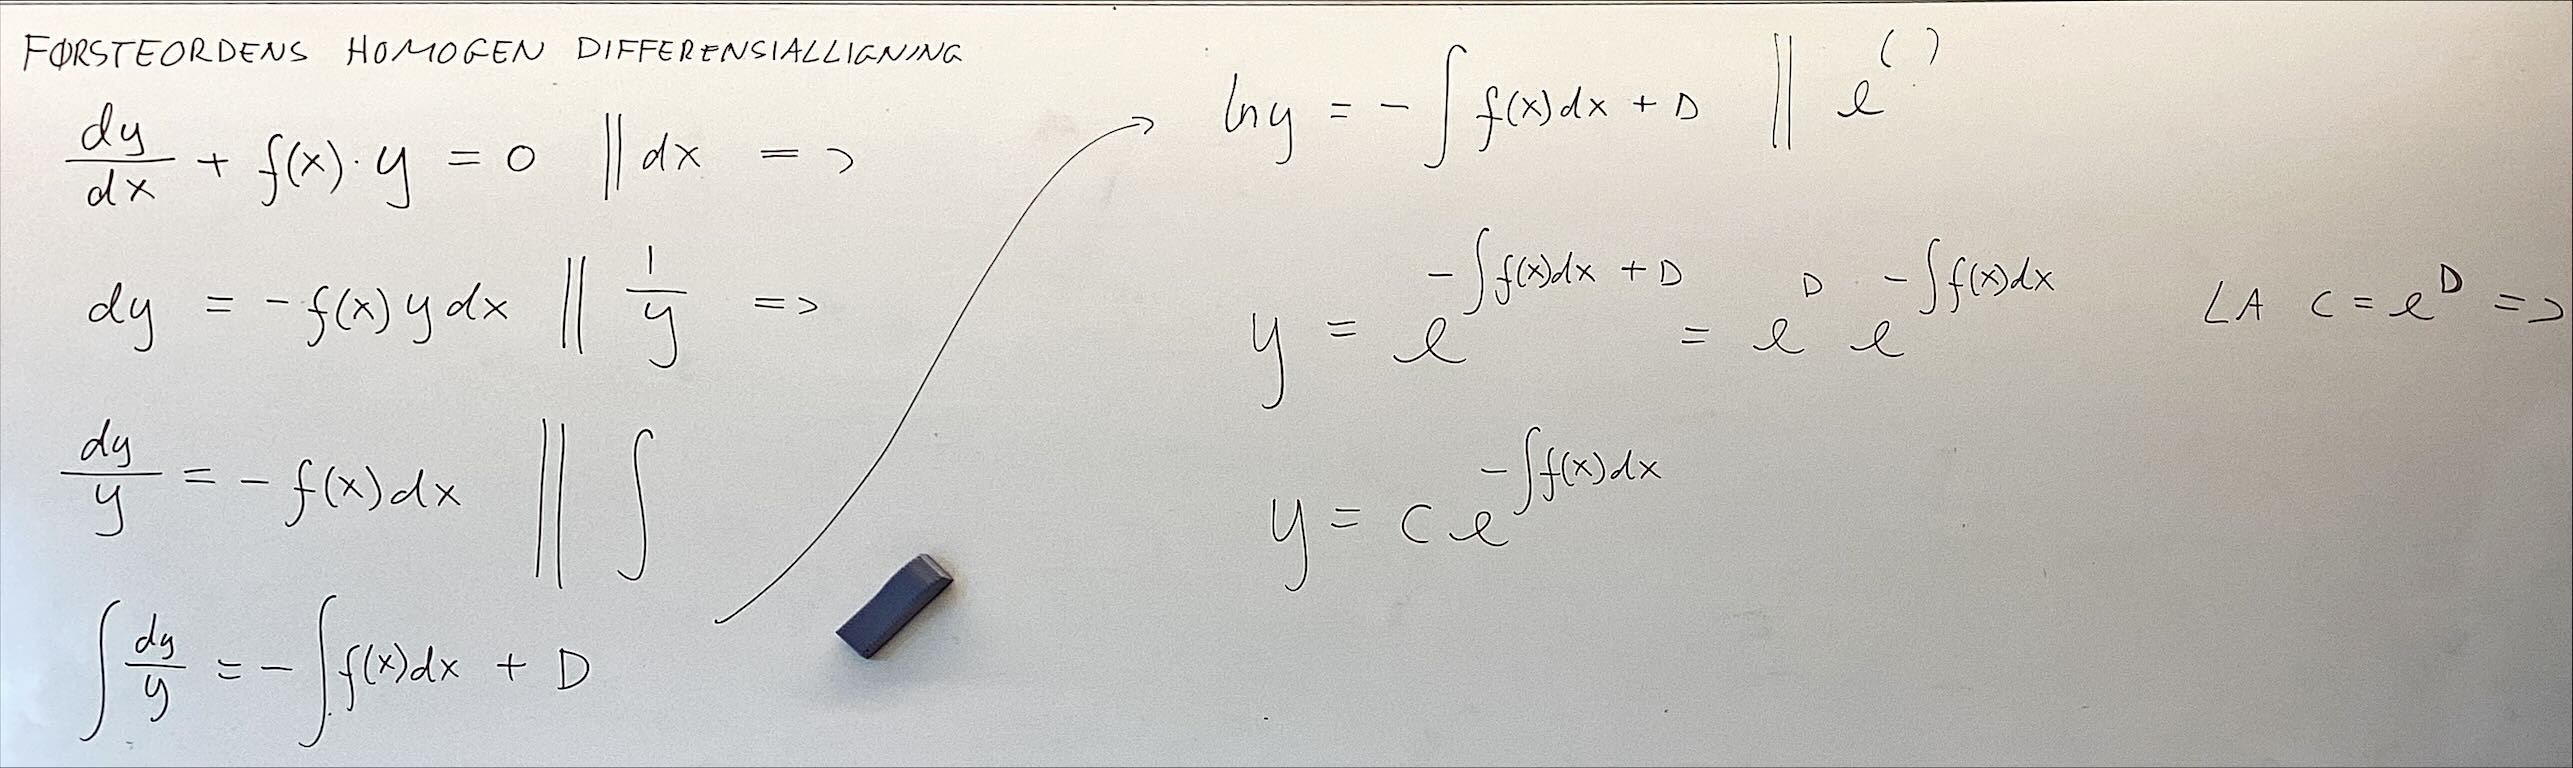 FØRSTEORDENS HOMOGEN DIFFERENSIALLIGNING
dy/dx + f(x)·y = 0 || dx =>
dy = -f(x) y dx || 1/y =>
dy/y = -f(x)dx || ∫
∫ dy/y = -∫f(x)dx + D
ln y = -∫f(x)dx + D || e^( )
y = e^(-∫f(x)dx + D) = e^D e^(-∫f(x)dx) LA C = e^D =>
y = C e^(-∫f(x)dx)